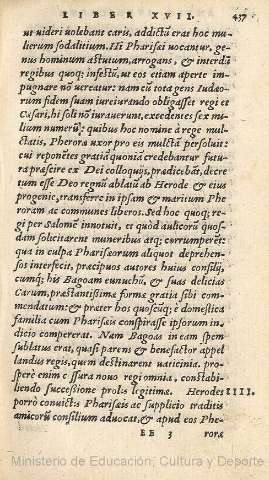 LIBER XVII. 437
ut videri volebant caris, addictā erat hoc mu-
lierum sodalitium. Hi Pharisæi vocantur, ge-
nus hominum astutum, arrogans, & interdū
regibus quoq; infestū, ut eos etiam aperte im-
pugnare nō vereatur: nam cū tota gens Iudæo-
rum fidem suam iureiurando obligasset regi et
Cæsari, hi soli nō iuraverunt, excedentes sex mil-
lium numerū: quibus hoc nomine à rege mul-
ctatis, Pheroræ uxor pro eis mulctā persoluit:
cui reponētes gratiā quoniā credebantur futu-
ra præscire ex Dei colloquijs, prædicebāt, decre
tum esse Deo regnū ablatū ab Herode & eius
progenie, transferre in ipsam & maritum Phe
roram ac communes liberos. Sed hoc quoq; re-
gi per Salomēn innotuit, et quòd aulicorū quos-
dam solicitarent muneribus atq; corrumperēt:
qua in culpa Phariseorum aliquot deprehen-
sos interfecit, præcipuos autores huius consilij,
cumq; his Bagoam eunuchū, & suas delicias
Carum, præstantissima forma gratia sibi com-
mendatum: & præter hos quoscūq; è domestica
familia cum Pharisæis conspirasse ipsorum in-
dicio compererat. Nam Bagoas in eam spem
sublatus erat, quasi parens & benefactor appel
landus regis, quem destinarent vaticinia. pro-
sperè enim cessura novo regi omnia, constabi-
liendo successione prolis legitimæ. Herodes IIII.
porrò convictis Pharisæis ac supplicio traditis
amicorū consilium advocat, & apud eos Phe-
EE 3 roræ
Ministerio de Educación, Cultura y Deporte